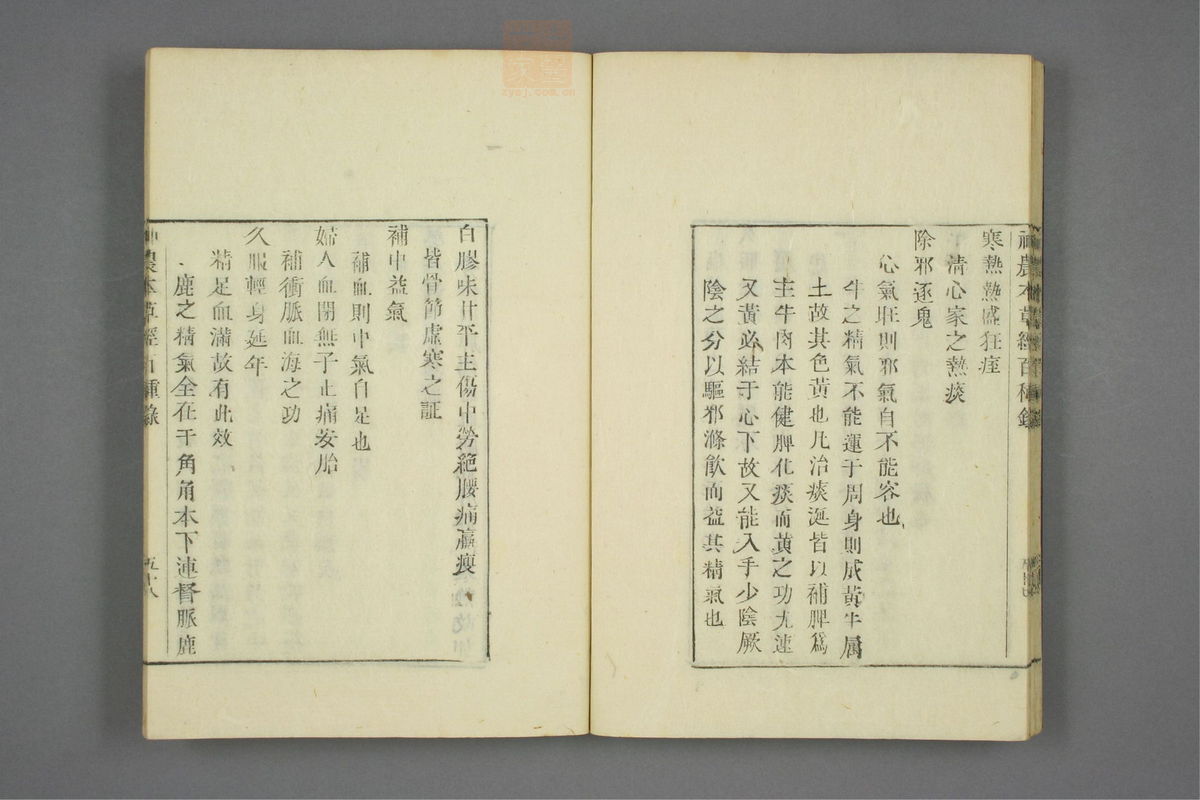 神農本草經百種錄
寒熱熱盛狂痓
清心家之熱痰
除邪逐鬼
心氣旺則邪氣自不能容也
牛之精氣不能運于周身則成黃牛属
土故其色黃也凡治痰涎皆以補脾為
主牛肉本能健脾化痰而黃之功尤速
又黃必結于心下故又能入手少陰厥
陰之分以驅邪滌飲而益其精氣也
白膠味甘平主傷中勞絕腰痛羸瘦
皆骨節虛寒之証
補中益氣
補血則中氣自足也
婦人血閉無子止痛安胎
補衝脈血海之功
久服輕身延年
精足血滿故有此效
鹿之精氣全在于角角本下連督脈鹿
神農本草經百種錄
五十八
zysj.com.cn